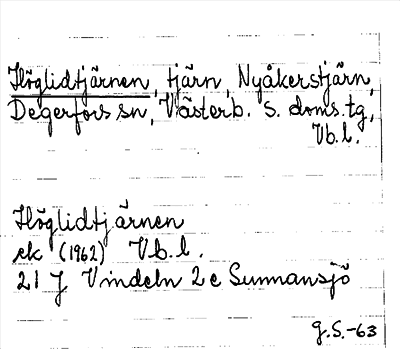 Höglidtjärnen, tjärn, Nyåkerstjärn,
Degerfors sn, Västerb. s. doms. tg,
Vb. l.
Höglidtjärnen
ek (1962) Vb. l.
21 J Vindeln 2 c Sunnansjö
g.S.-63